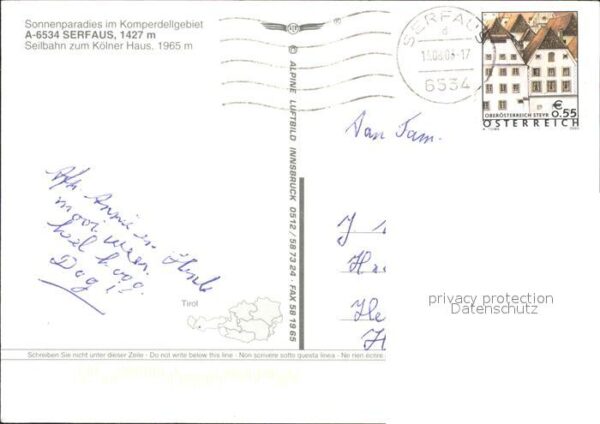 Sonnenparadies im Komperdellgebiet
A-6534 SERFAUS, 1427 m
Seilbahn zum Kölner Haus, 1965 m
© ALPINE LUFTBILD INNSBRUCK 0512/58 73 24 · FAX 58 19 65
SERFAUS
d
6534
€ 0.55
OBERÖSTERREICH STEYR
ÖSTERREICH
Fam.
Afz. Annie en
mooi weer.
heel hoog.
Dag!
Tirol
privacy protection
Datenschutz
Schreiben Sie nicht unter dieser Zeile · Do not write below this line · Non scrivere sotto questa linea · Ne rien écrire